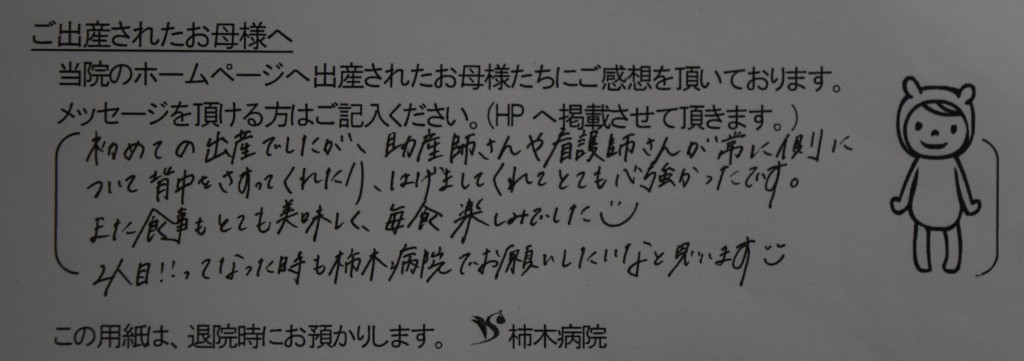 ご出産されたお母様へ
当院のホームページへ出産されたお母様たちにご感想を頂いております。
メッセージを頂ける方はご記入ください。(HP へ掲載させて頂きます。)
初めての出産でしたが、助産師さんや看護師さんが常に側に
ついて背中をさすってくれたり、はげましてくれてとても心強かったです。
また食事もとても美味しく、毎食楽しみでした
2人目!!ってなった時も柿木病院でお願いしたいなと思います
この用紙は、退院時にお預かりします。 柿木病院